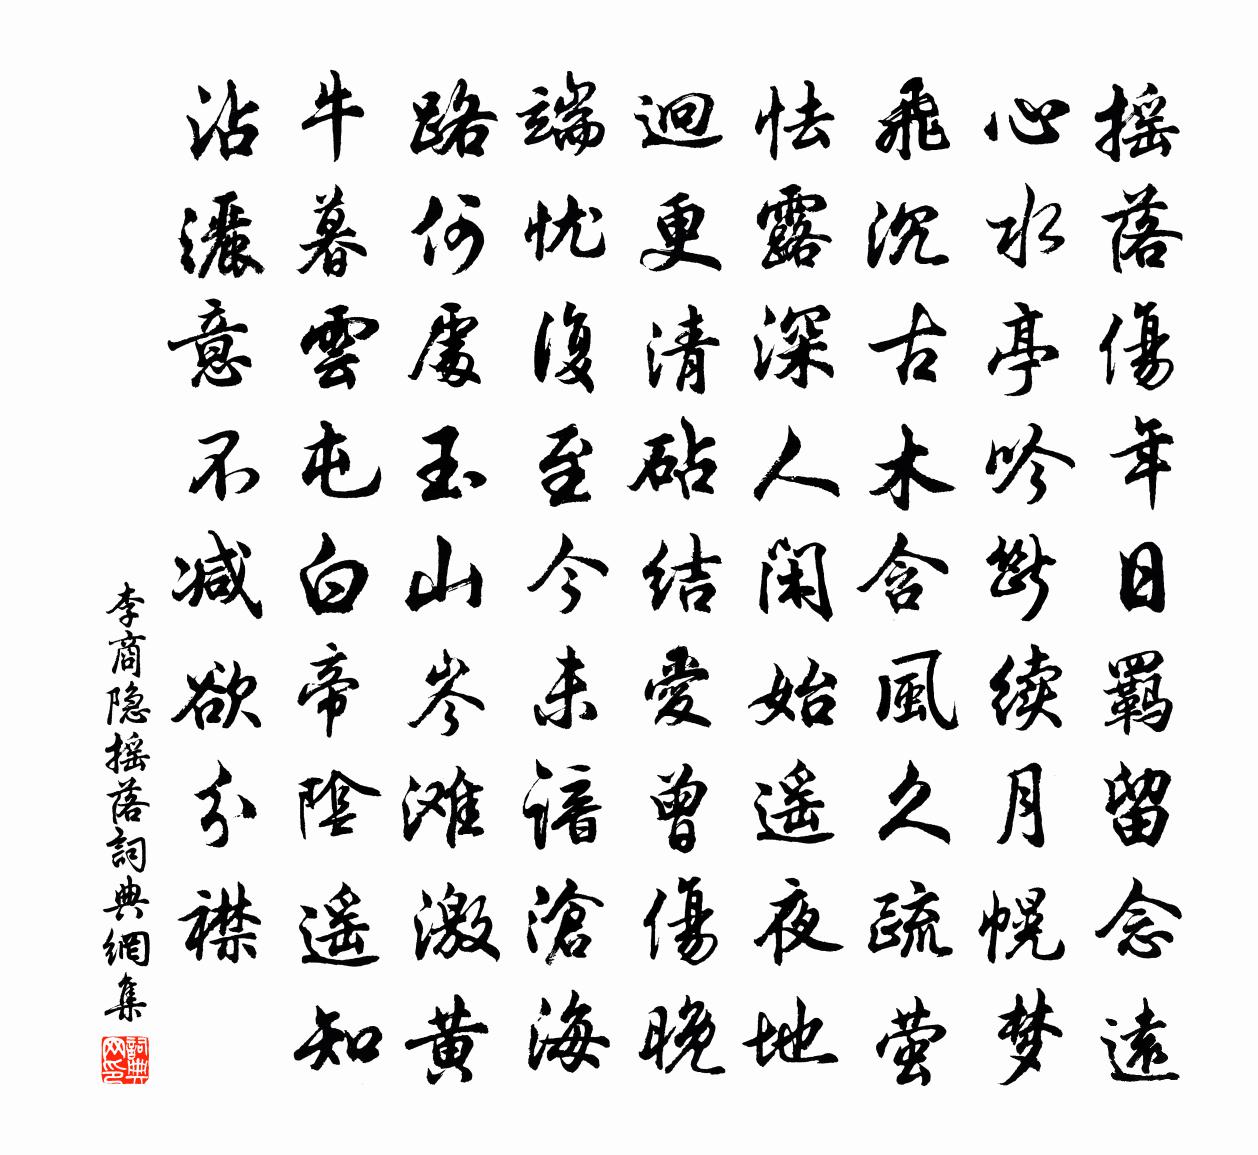 摇落傷年日羁留念遠
心水亭吟斷续月幌梦
飛沉古木含風久疏萤
怯露深人闲始遥夜地
迥更清砧结愛曾傷晚
端忧復至今未谙滄海
路何處玉山岑滩激黄
牛暮雲屯白帝陰遥知
沾灑意不减欲分襟
李商隐摇落詞典網集
詞典网印